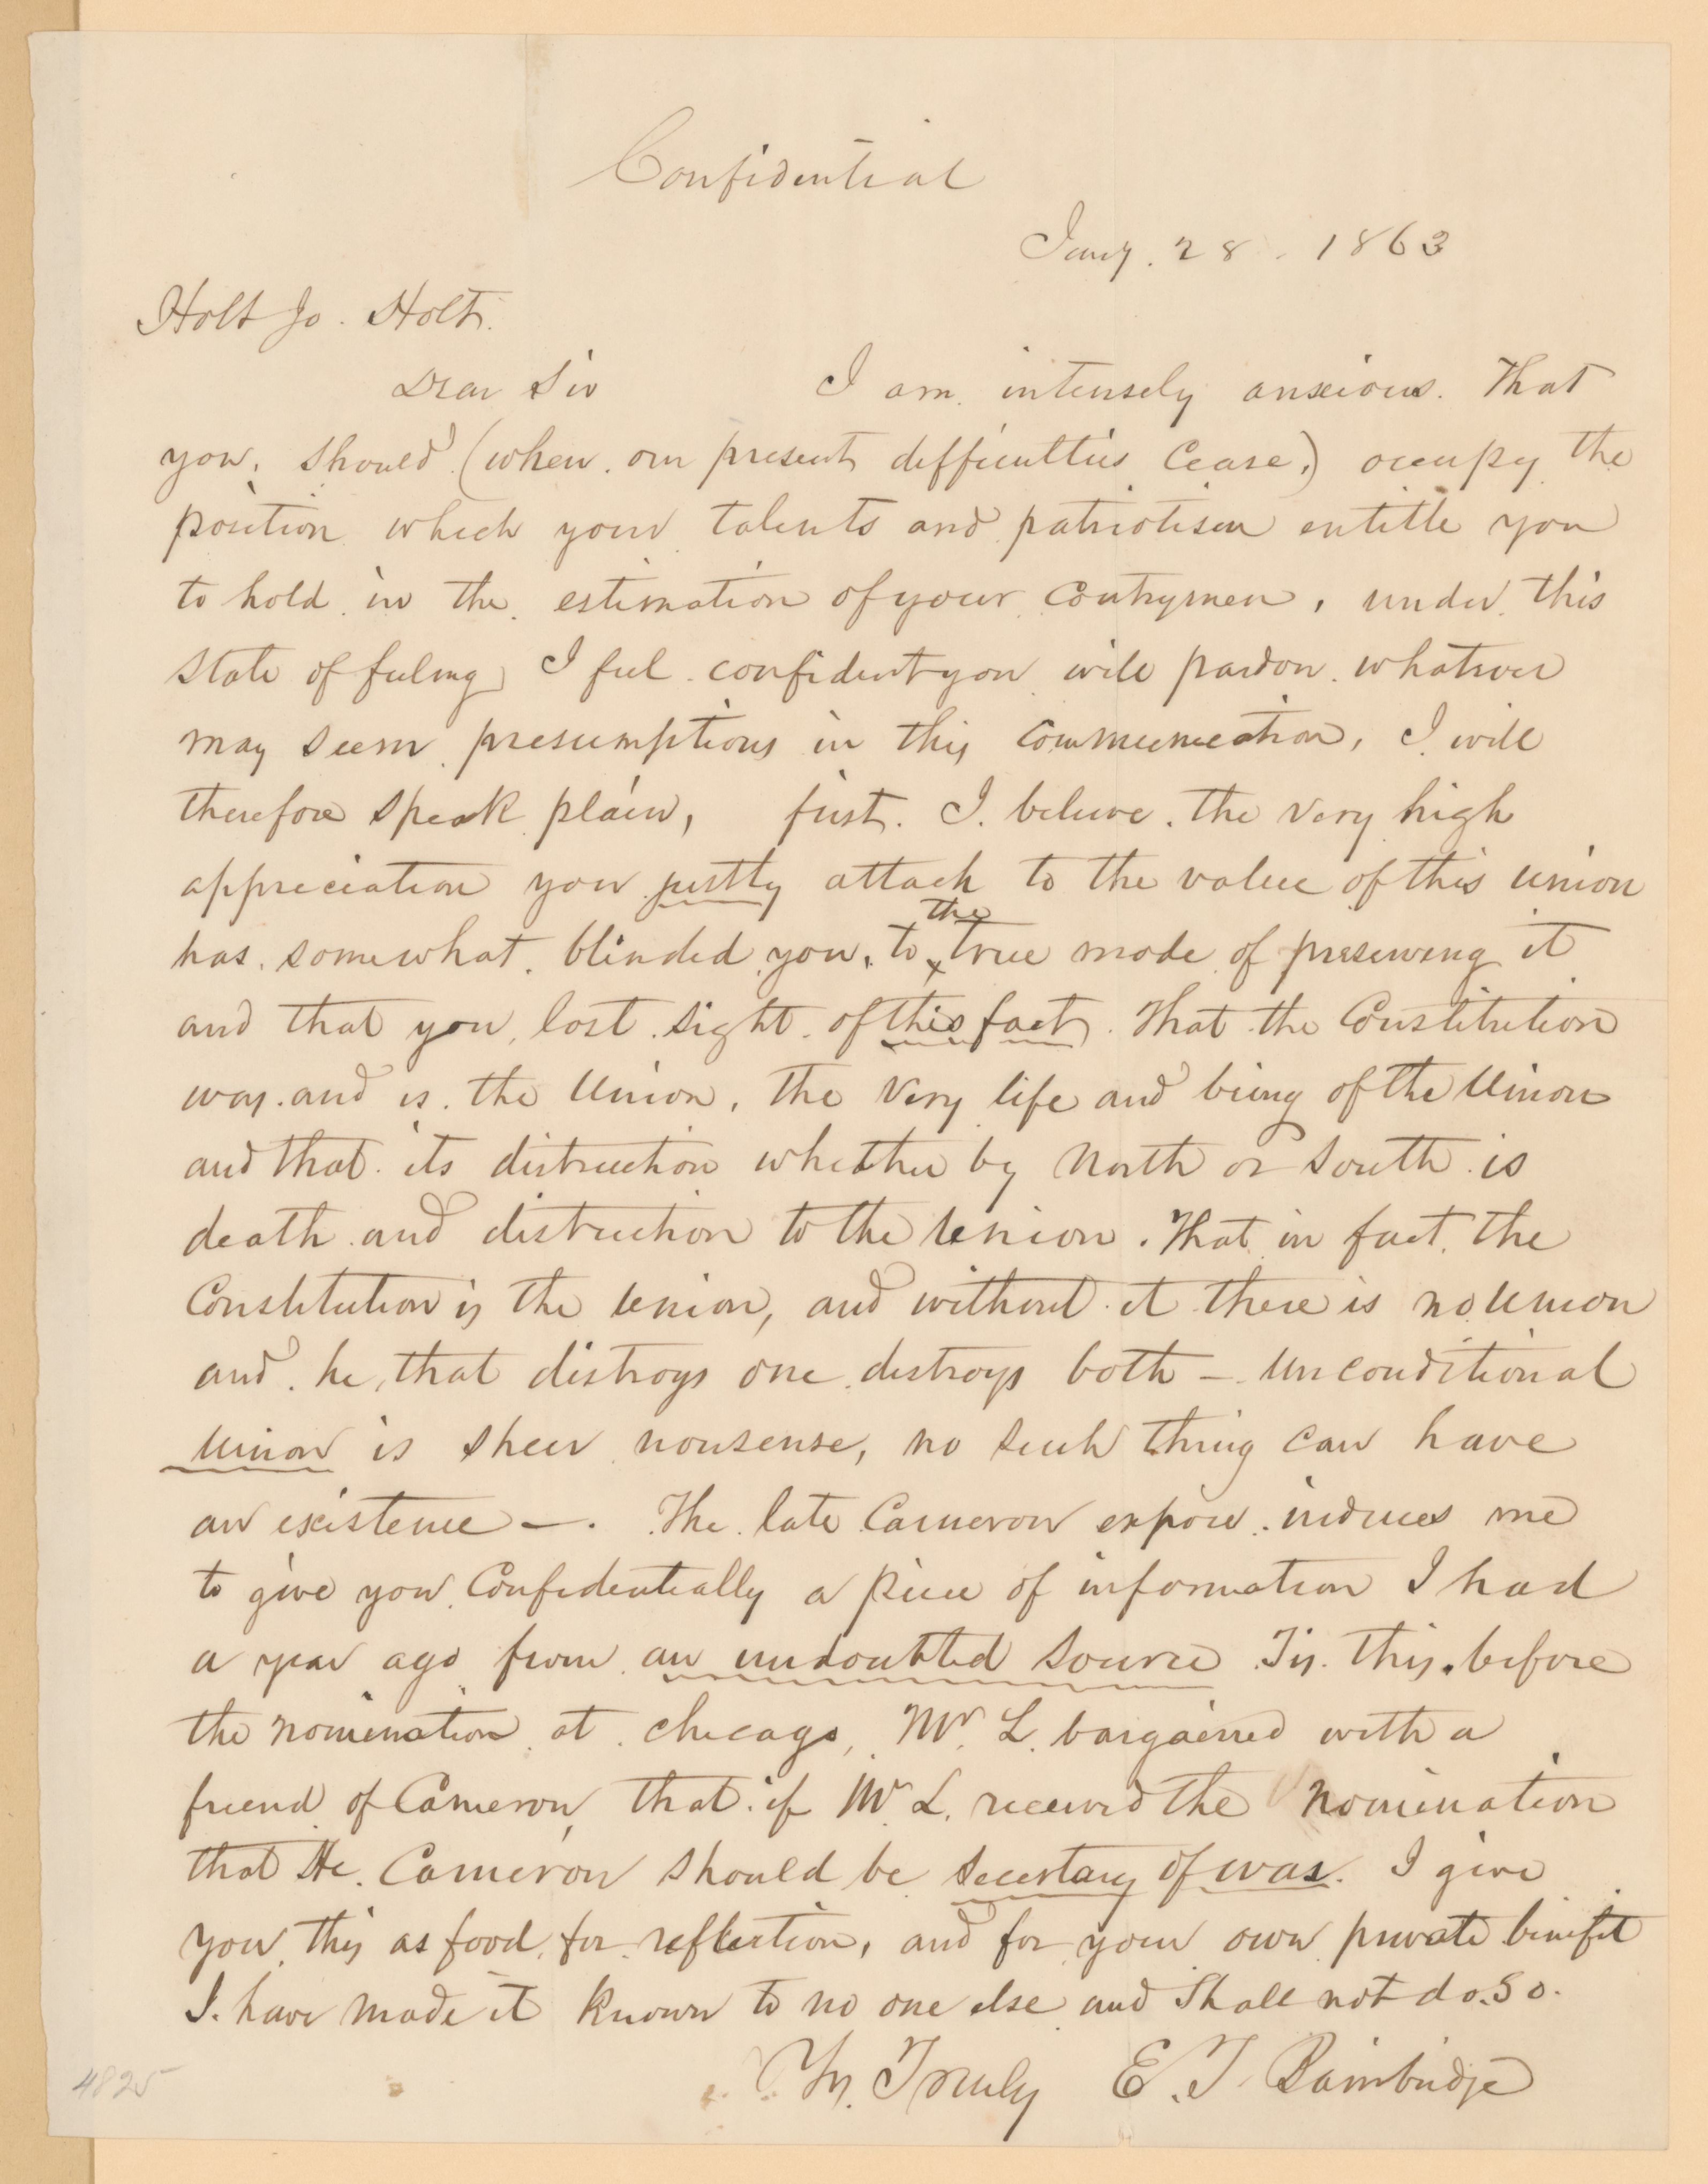 Confidential
Jany. 28. 1863
Holt Jo. Holt.
Dear Sir I am intensely anxious. That
you, should (when our present defficulties Cease,) occupy the
position which your talents and patriotism entitle you
to hold in the estimation of your Contrymen, under this
state of feeling I feel confident you will pardon whatever
may seem presumptious in this communication, I will
therefore speak plain, first. I. believe. the very high
appreciation you justly attach to the value of this union
has somewhat blinded you, to the true mode of preserving it
and that you, lost sight of this fact. That the Constitution
was and is the Union, the very life and being of the Union
and that its distruction whether by North or South is
death and distruction to the Union. That in fact the
Constitution is the Union, and without it there is no Union
and he, that distroys one destroys both — Unconditional
Union is sheer nonsense, no such thing can have
an existence —. The late Cameron expose induces me
to give you Confidentially a piece of information I had
a year ago from an undoubted source Tis this. before
the nomination at Chicago, Mr L. bargained with a
friend of Cameron, that if Mr L. received the nomination
that He. Cameron should be Secertary of war. I give
you this as food for reflection, and for your own private benifit
I. have made it known to no one else and Shall not do so.
Yrs. Truly E. T. Bainbridge
4825